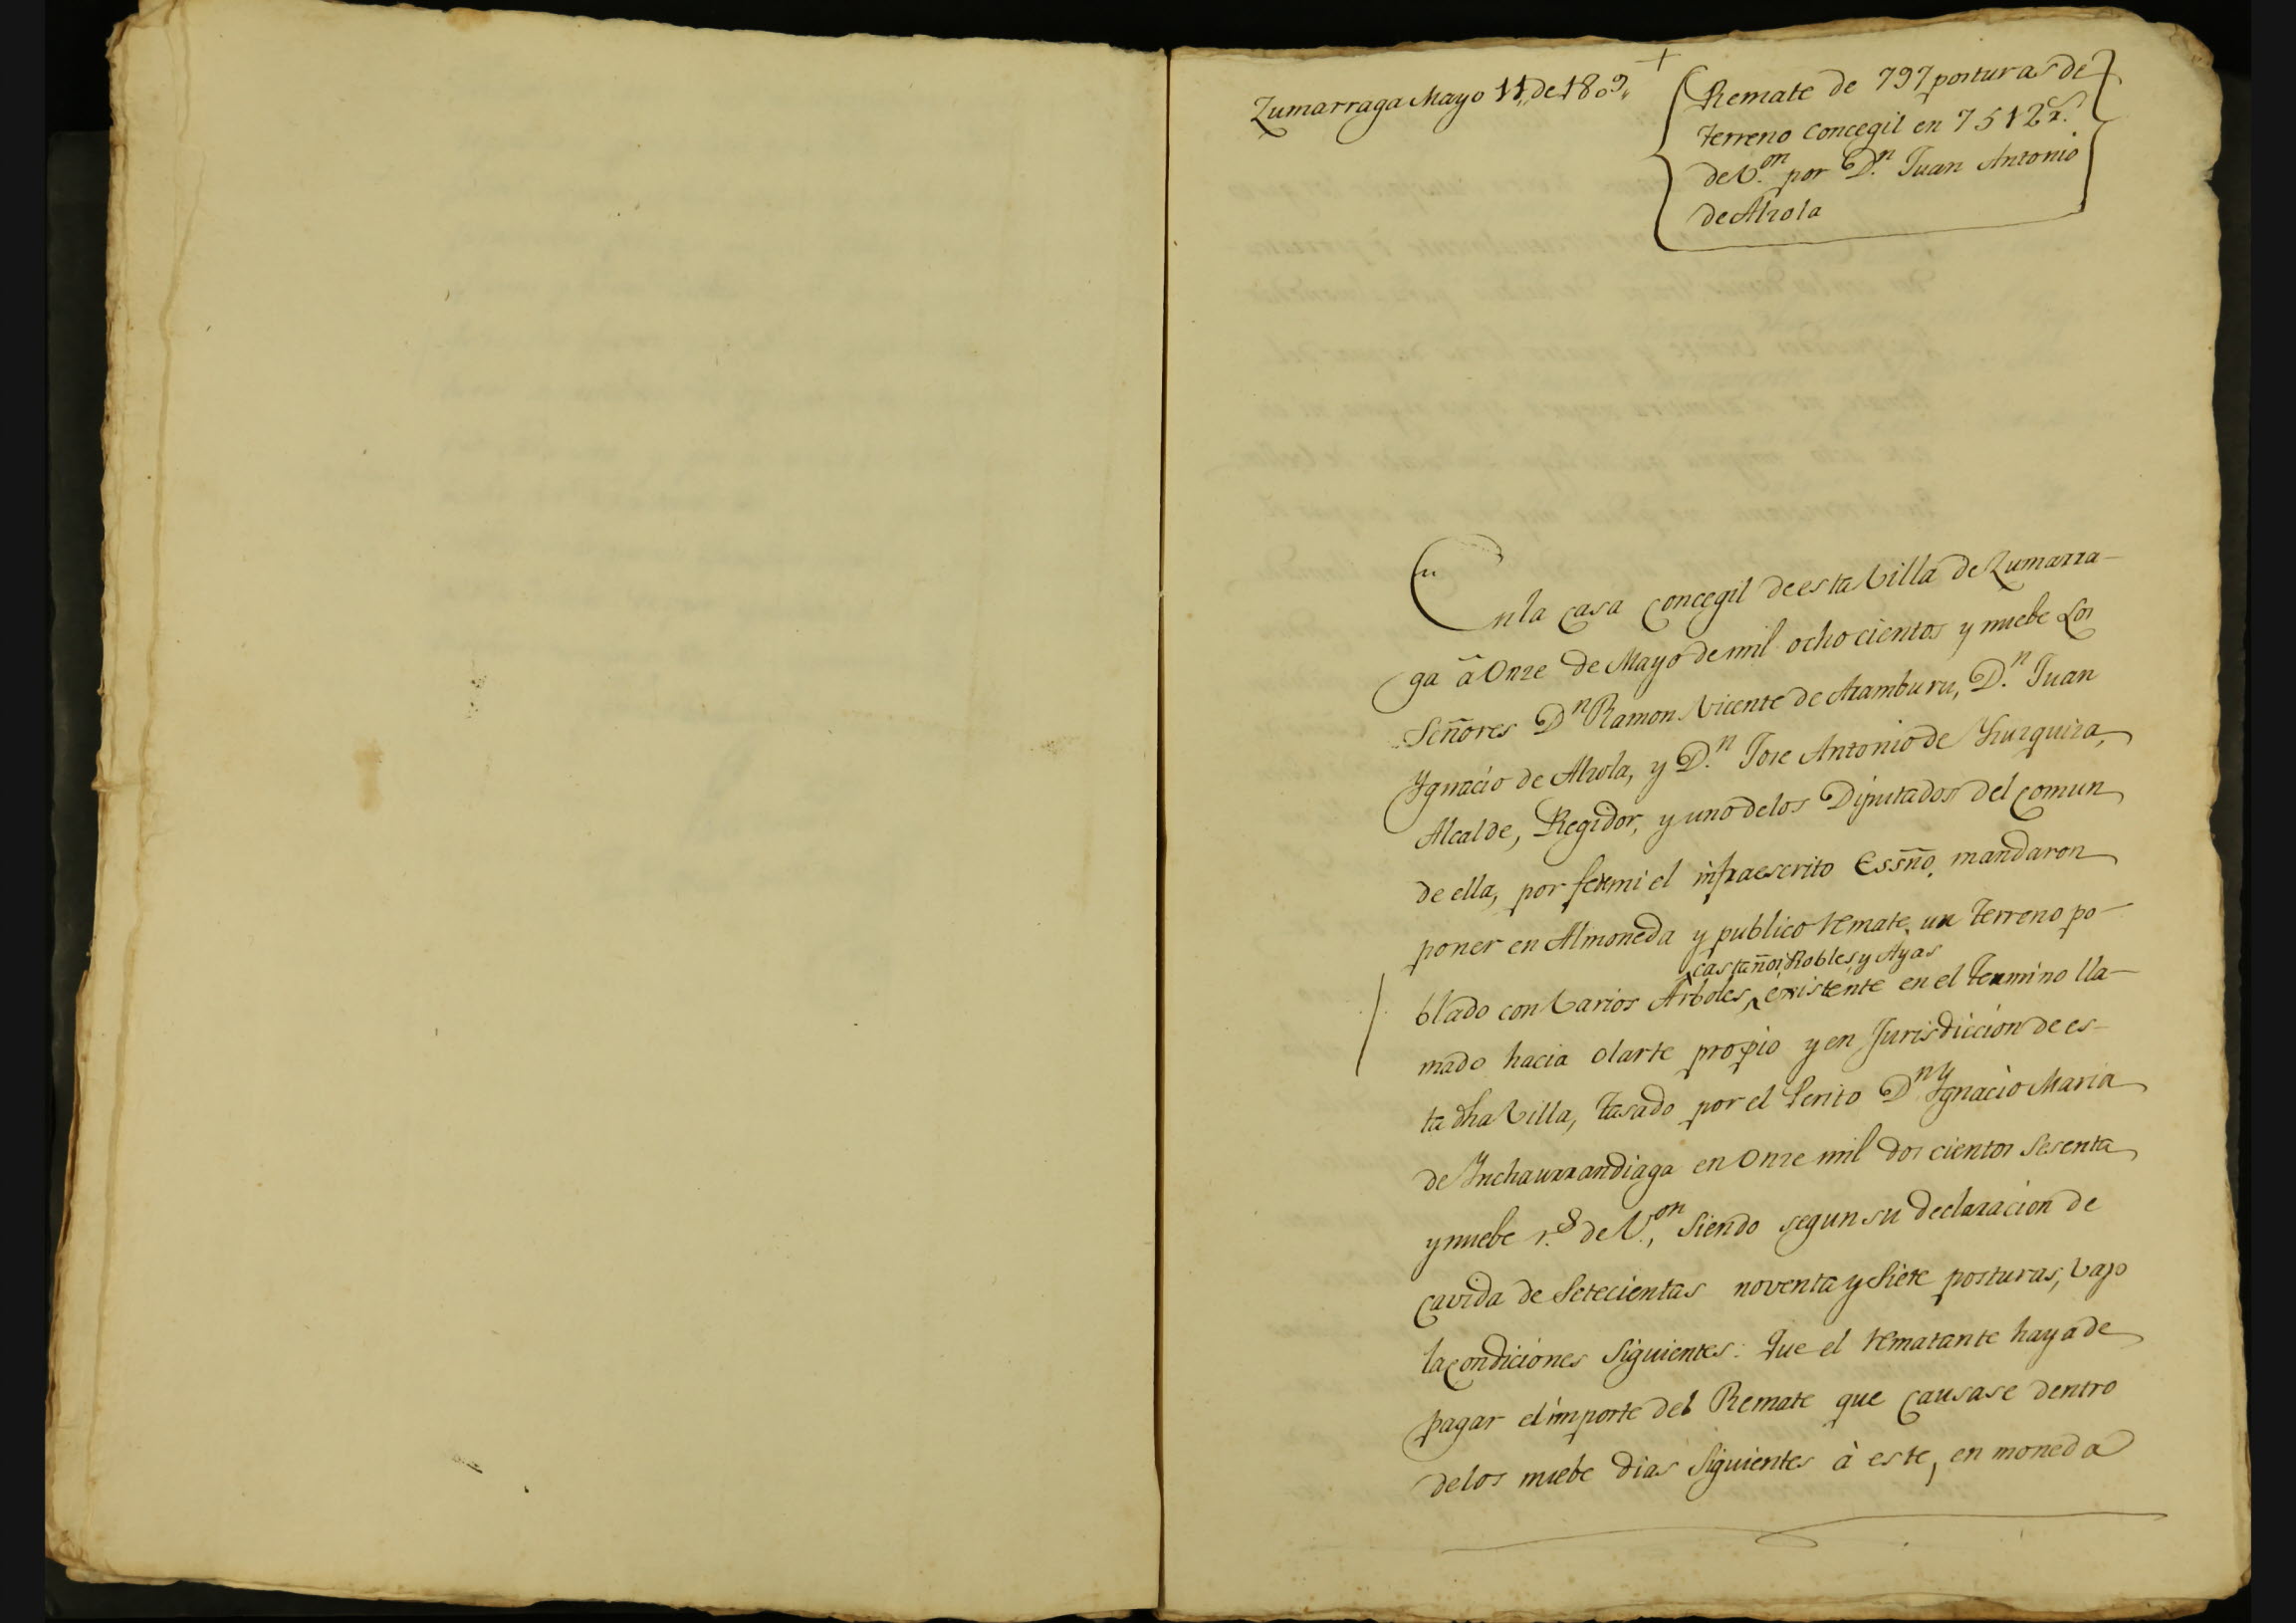 +
Zumarraga Mayo 11,, de 1809,,
Remate de 797 posturas de
terreno concegil en 7512 r.^s
de V.^on por D.^n Juan Antonio
de Alzola
En la casa concegil de esta Villa de Zumarra-
ga â Onze de Mayo de mil ocho cientos y nuebe Los
Señores D^n Ramon Vicente de Aramburu, D.^n Juan
Ygnacio de Alzola, y D.^n Jose Antonio de Yzuzquiza,
Alcalde, Regidor, y uno de los Diputados del comun
de ella, por fee mi el infraescrito Essño. mandaron
poner en Almoneda y publico remate, un terreno po-
castaños, Robles, y Ayas
blado con Varios Arboles, existente en el termino lla-
mado hacia olarte propio y en Jurisdiccion de es-
ta dha Villa, tasado por el Perito D^n Ygnacio Maria
de Ynchaurrandiaga en Onze mil dos cientos sesenta
y nuebe r.^s de V.^on, siendo segun su declaracion de
cavida de Setecientas noventa y Siete posturas, vajo
la condiciones siguientes: Que el rematante haya de
pagar el importe del Remate que causase dentro
de los nuebe dias siguientes à este, en moneda